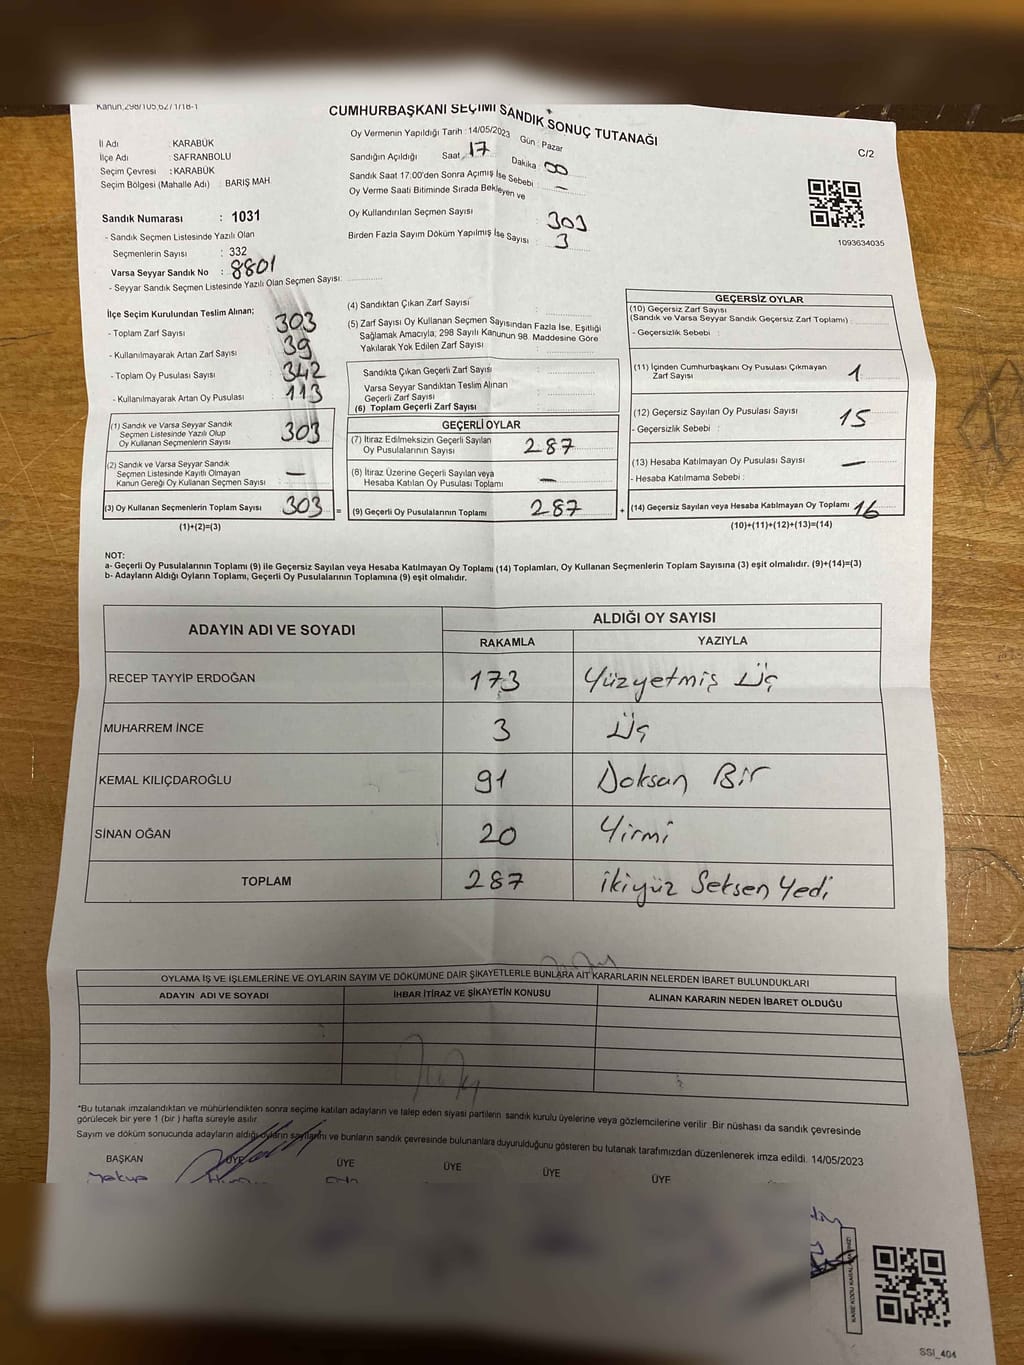 Kanun:298/105,6271/18-1
CUMHURBAŞKANI SEÇİMİ SANDIK SONUÇ TUTANAĞI
C/2
İl Adı : KARABÜK
İlçe Adı : SAFRANBOLU
Seçim Çevresi : KARABÜK
Seçim Bölgesi (Mahalle Adı) : BARIŞ MAH.
Oy Vermenin Yapıldığı Tarih : 14/05/2023 Gün : Pazar
Sandığın Açıldığı Saat 17 Dakika : 00
Sandık Saat 17:00'den Sonra Açımış İse Sebebi : —
Oy Verme Saati Bitiminde Sırada Bekleyen ve
Oy Kullandırılan Seçmen Sayısı : 303
Birden Fazla Sayım Döküm Yapılmış İse Sayısı : 3
1093634035
Sandık Numarası : 1031
- Sandık Seçmen Listesinde Yazılı Olan
Seçmenlerin Sayısı : 332
Varsa Seyyar Sandık No : 8801
- Seyyar Sandık Seçmen Listesinde Yazılı Olan Seçmen Sayısı:
İlçe Seçim Kurulundan Teslim Alınan;
- Toplam Zarf Sayısı : 303
- Kullanılmayarak Artan Zarf Sayısı : 39
- Toplam Oy Pusulası Sayısı : 342
- Kullanılmayarak Artan Oy Pusulası : 113
(1) Sandık ve Varsa Seyyar Sandık
Seçmen Listesinde Yazılı Olup
Oy Kullanan Seçmenlerin Sayısı : 303
(2) Sandık ve Varsa Seyyar Sandık
Seçmen Listesinde Kayıtlı Olmayan
Kanun Gereği Oy Kullanan Seçmen Sayısı : —
(3) Oy Kullanan Seçmenlerin Toplam Sayısı 303 =
(1)+(2)=(3)
(4) Sandıktan Çıkan Zarf Sayısı :
(5) Zarf Sayısı Oy Kullanan Seçmen Sayısından Fazla İse, Eşitliği
Sağlamak Amacıyla, 298 Sayılı Kanunun 98. Maddesine Göre
Yakılarak Yok Edilen Zarf Sayısı :
Sandıkta Çıkan Geçerli Zarf Sayısı :
Varsa Seyyar Sandıktan Teslim Alınan
Geçerli Zarf Sayısı :
(6) Toplam Geçerli Zarf Sayısı :
GEÇERLİ OYLAR
(7) İtiraz Edilmeksizin Geçerli Sayılan
Oy Pusulalarının Sayısı : 287
(8) İtiraz Üzerine Geçerli Sayılan veya
Hesaba Katılan Oy Pusulası Toplamı : —
(9) Geçerli Oy Pusulalarının Toplamı : 287 +
GEÇERSİZ OYLAR
(10) Geçersiz Zarf Sayısı
(Sandık ve Varsa Seyyar Sandık Geçersiz Zarf Toplamı) :
- Geçersizlik Sebebi :
(11) İçinden Cumhurbaşkanı Oy Pusulası Çıkmayan
Zarf Sayısı : 1
(12) Geçersiz Sayılan Oy Pusulası Sayısı : 15
- Geçersizlik Sebebi :
(13) Hesaba Katılmayan Oy Pusulası Sayısı : —
- Hesaba Katılmama Sebebi :
(14) Geçersiz Sayılan veya Hesaba Katılmayan Oy Toplamı 16
(10)+(11)+(12)+(13)=(14)
NOT:
a- Geçerli Oy Pusulalarının Toplamı (9) ile Geçersiz Sayılan veya Hesaba Katılmayan Oy Toplamı (14) Toplamları, Oy Kullanan Seçmenlerin Toplam Sayısına (3) eşit olmalıdır. (9)+(14)=(3)
b- Adayların Aldığı Oyların Toplamı, Geçerli Oy Pusulalarının Toplamına (9) eşit olmalıdır.
ADAYIN ADI VE SOYADI
ALDIĞI OY SAYISI
RAKAMLA YAZIYLA
RECEP TAYYİP ERDOĞAN 173 Yüzyetmiş Üç
MUHARREM İNCE 3 Üç
KEMAL KILIÇDAROĞLU 91 Doksan Bir
SİNAN OĞAN 20 Yirmi
TOPLAM 287 ikiyüz Seksen Yedi
OYLAMA İŞ VE İŞLEMLERİNE VE OYLARIN SAYIM VE DÖKÜMÜNE DAİR ŞİKAYETLERLE BUNLARA AİT KARARLARIN NELERDEN İBARET BULUNDUKLARI
ADAYIN ADI VE SOYADI İHBAR İTİRAZ VE ŞİKAYETİN KONUSU ALINAN KARARIN NEDEN İBARET OLDUĞU
*Bu tutanak imzalandıktan ve mühürlendikten sonra seçime katılan adayların ve talep eden siyasi partilerin sandık kurulu üyelerine veya gözlemcilerine verilir. Bir nüshası da sandık çevresinde
görülecek bir yere 1 (bir ) hafta süreyle asılır.
Sayım ve döküm sonucunda adayların aldığı oyların sayılarını ve bunların sandık çevresinde bulunanlara duyurulduğunu gösteren bu tutanak tarafımızdan düzenlenerek imza edildi. 14/05/2023
BAŞKAN ÜYE ÜYE ÜYE ÜYE ÜYE
SSİ_404